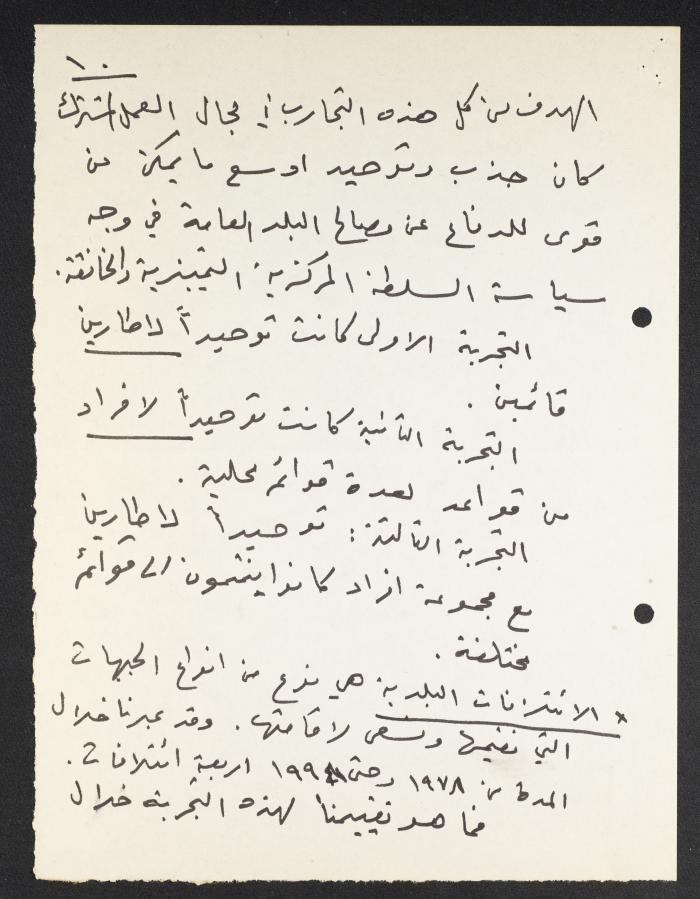 ١٠
الهدف من كل هذه التجارب في مجال العمل المشترك
كان جذب وتوحيد اوسع ما يمكن من
قوى للدفاع عن مصالح البلد العامة في وجه
سياسة السلطة المركزية التميزية والخانقة.
التجربة الاولى كانت توحيداً لاطارين
قائمين.
التجربة الثانية كانت توحيداً لافراد
من قواعد لعدة قوائم محلية.
التجربة الثالثة: توحيداً لاطارين
مع مجموعة افراد كانوا ينتمون الى قوائم
مختلفة.
* الائتلافات البلدية هي نوع من انواع الجبهات
التي نقيمها ونسعى لاقامتها. وقد عبرنا خلال
المدة من ١٩٧٨ وحتى ١٩٩٨ اربعة ائتلافات.
فما هو تقييمنا لهذه التجربة خلال